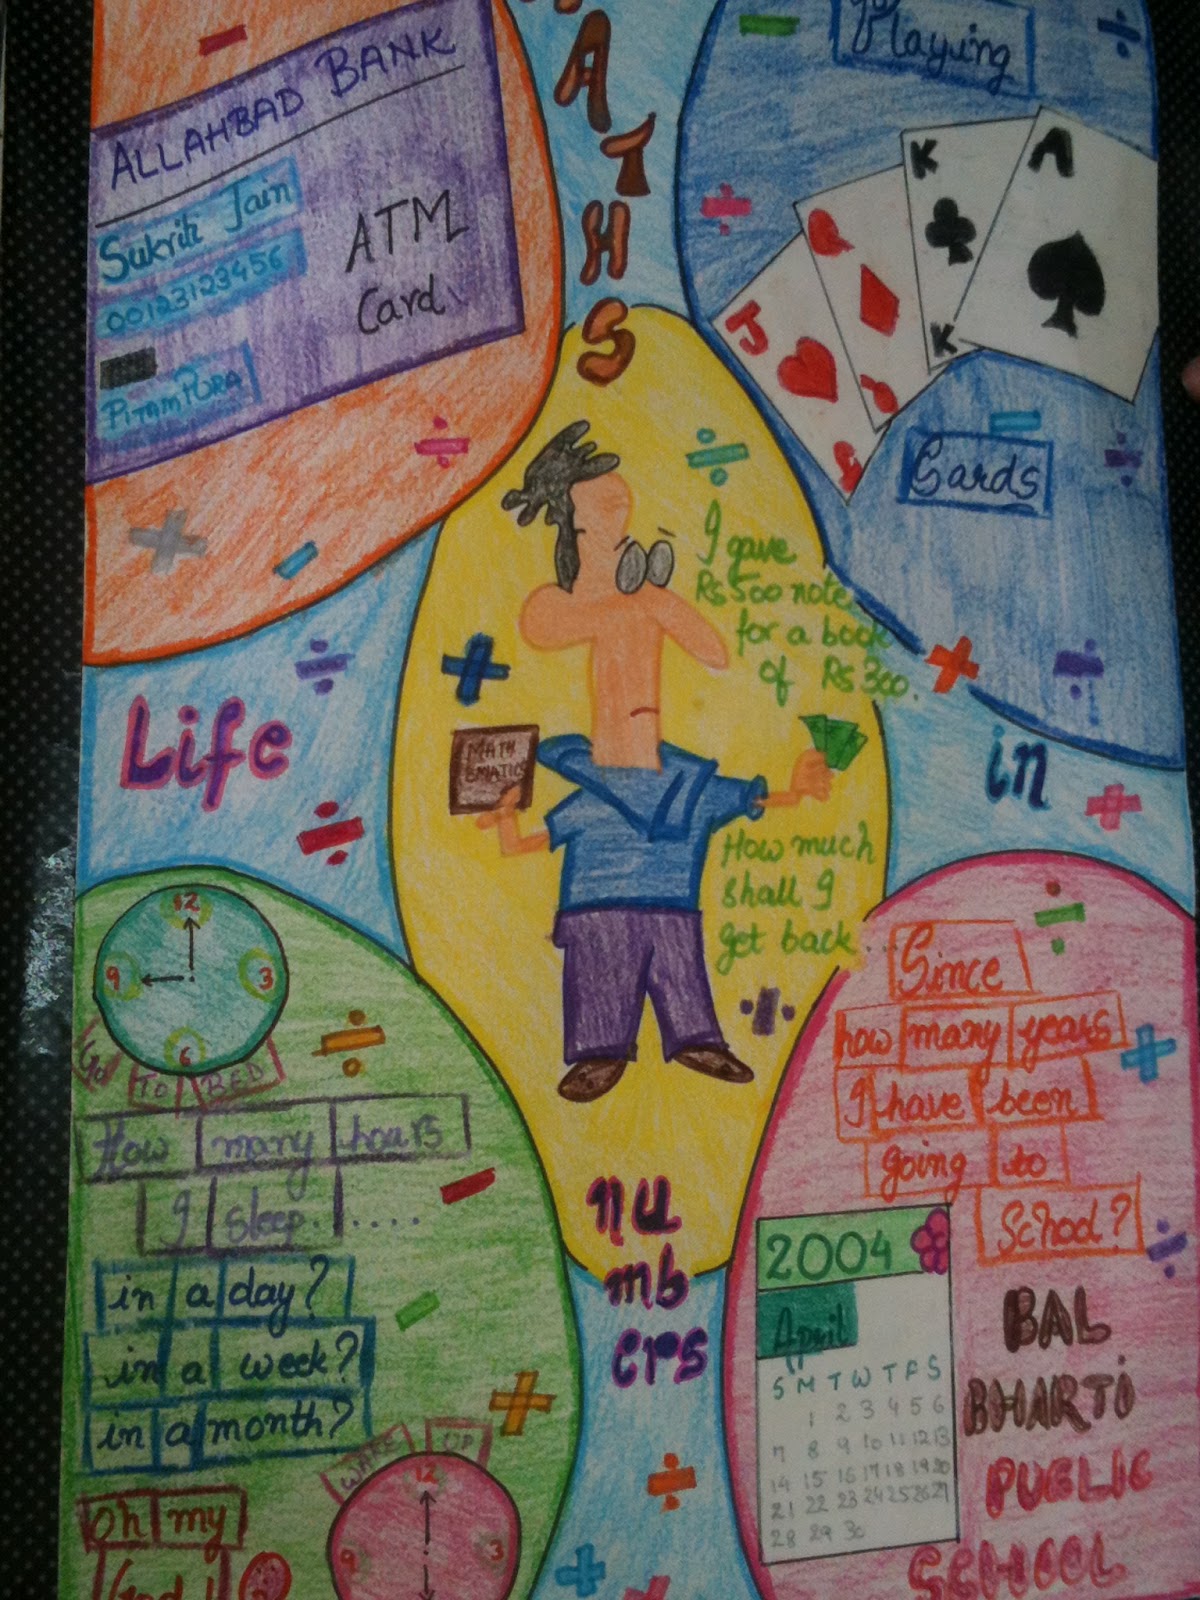 MATHS
ALLAHBAD BANK
Sukriti Jain
00123123456
PITAMPURA
ATM
Card
Playing
J
K
K
A
Cards
I gave
Rs 500 note
for a book
of Rs 300.
MATH
EMATICS
How much
shall I
get back...
Life
in
nu
mb
ers
12
9
3
6
Go TO BED
How many hours
I sleep.....
in a day?
in a week?
in a month?
WAKE UP
oh my
God!
12
9
3
Since
how many years
I have been
going to
School?
2004
April
S M T W T F S
1 2 3 4 5 6
7 8 9 10 11 12 13
14 15 16 17 18 19 20
21 22 23 24 25 26 27
28 29 30
BAL
BHARTI
PUBLIC
SCHOOL